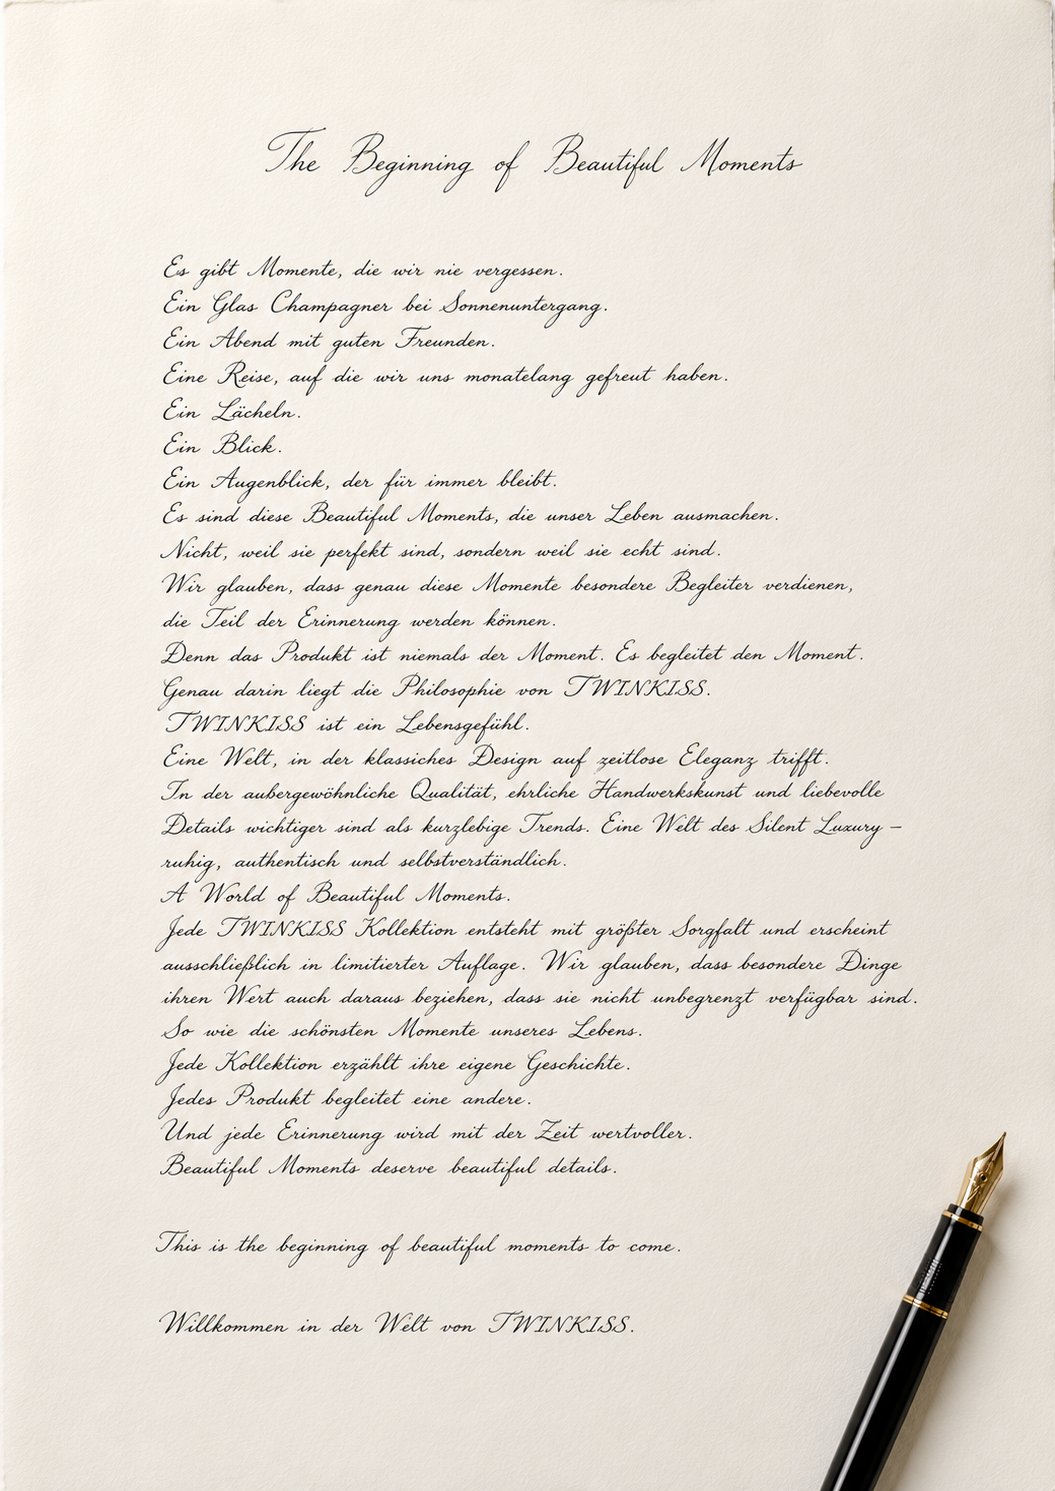 The Beginning of Beautiful Moments
Es gibt Momente, die wir nie vergessen.
Ein Glas Champagner bei Sonnenuntergang.
Ein Abend mit guten Freunden.
Eine Reise, auf die wir uns monatelang gefreut haben.
Ein Lächeln.
Ein Blick.
Ein Augenblick, der für immer bleibt.
Es sind diese Beautiful Moments, die unser Leben ausmachen.
Nicht, weil sie perfekt sind, sondern weil sie echt sind.
Wir glauben, dass genau diese Momente besondere Begleiter verdienen,
die Teil der Erinnerung werden können.
Denn das Produkt ist niemals der Moment. Es begleitet den Moment.
Genau darin liegt die Philosophie von TWINKISS.
TWINKISS ist ein Lebensgefühl.
Eine Welt, in der klassiches Design auf zeitlose Eleganz trifft.
In der außergewöhnliche Qualität, ehrliche Handwerkskunst und liebevolle
Details wichtiger sind als kurzlebige Trends. Eine Welt des Silent Luxury –
ruhig, authentisch und selbstverständlich.
A World of Beautiful Moments.
Jede TWINKISS Kollektion entsteht mit größter Sorgfalt und erscheint
ausschließlich in limitierter Auflage. Wir glauben, dass besondere Dinge
ihren Wert auch daraus beziehen, dass sie nicht unbegrenzt verfügbar sind.
So wie die schönsten Momente unseres Lebens.
Jede Kollektion erzählt ihre eigene Geschichte.
Jedes Produkt begleitet eine andere.
Und jede Erinnerung wird mit der Zeit wertvoller.
Beautiful Moments deserve beautiful details.
This is the beginning of beautiful moments to come.
Willkommen in der Welt von TWINKISS.